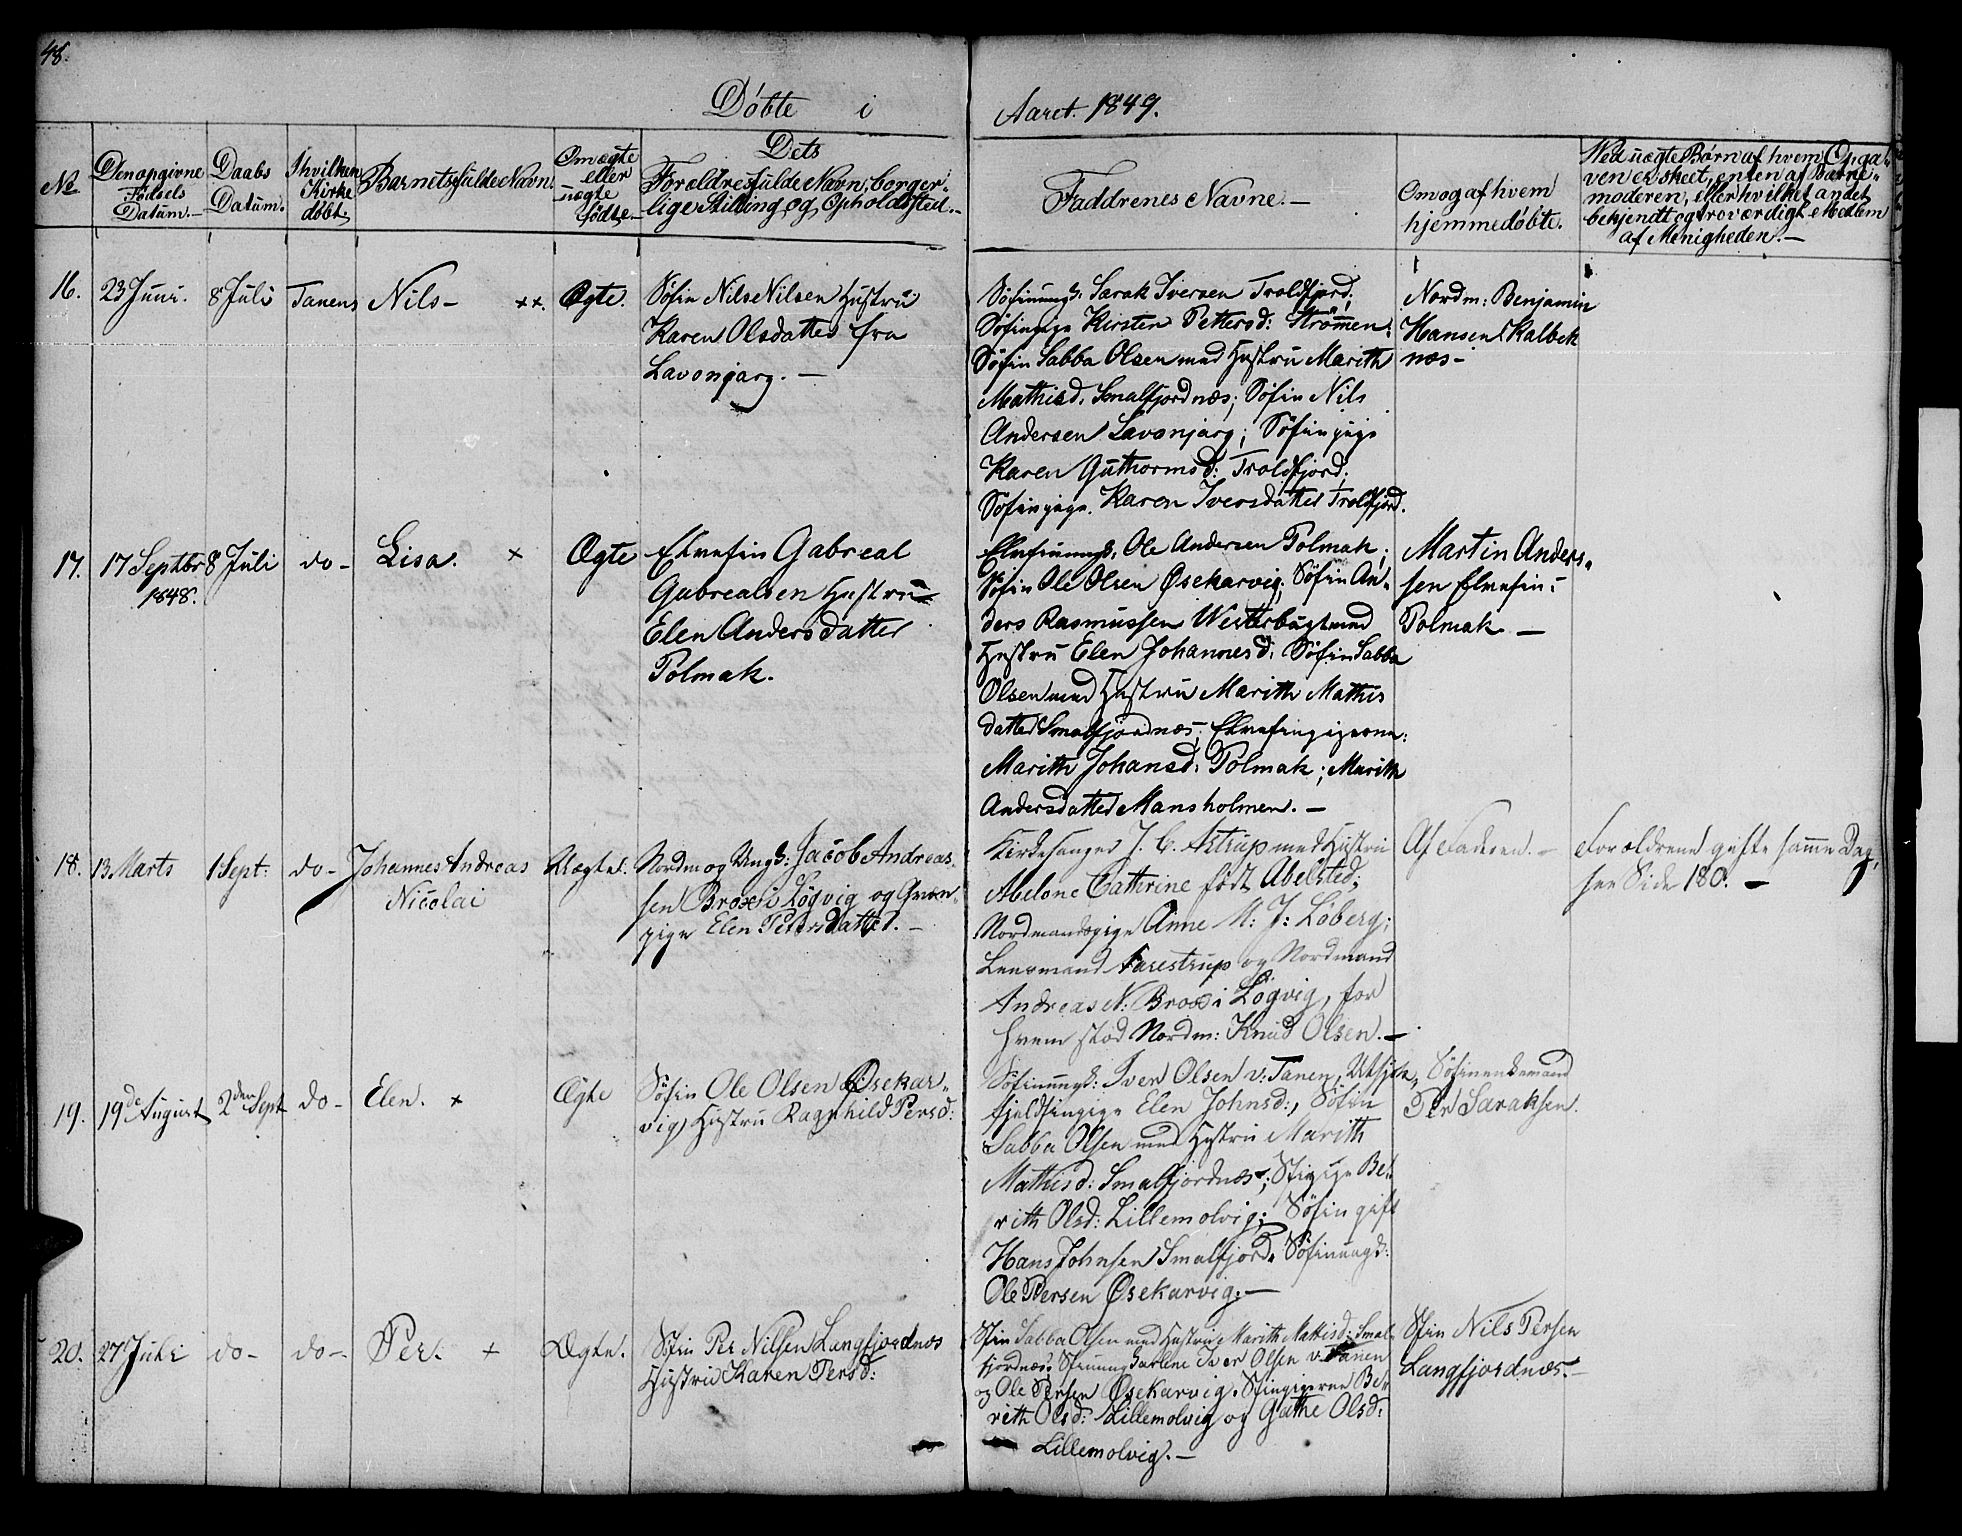 48.
Döbte i Aaret 1849.
No
Den opgivne
Födsels
Datum.-
Daabs
Datum.
I hvilken
Kirke
döbt
Barnets fulde Navn.
Om ægte
eller
uægte
födte.-
Dets
Forældres fulde Navn, borger-
lige Stilling og Opholdsted.-
Faddrenes Navne.-
Om og af hvem
hjemmedöbte.
Ved uægte Børn af hvem Opga-
ven er skeet, enten af Barne-
moderen, eller hvilket andet
bekjendt og troværdigt Medlem
af Menigheden.-
16. 23 Juni. 8 Juli Tanens Nils- xx. Ægte.
Söfin Nils Nilsen Hustru
Karen Olsdatter fra
Lavonjarg. -
Söfinungk: Sarak Iversen Troldfjord;
Söfinpige Kirsten Pettersd: Strömmen;
Söfin Sabba Olsen med Hustru Marith
Mathisd. Smalfjordnæs; Söfin Nils
Andersen Lavonjarg; Söfinpige
Karen Guthormsd: Troldfjord;
Söfinpige Karen Iversdatter Troldfjord.
Nordm: Benjamin
Hansen Kalbek
næs-
17. 17 Septbr 8 Juli do- Lisa. x Ægte
1848.
Elvefin Gabreal
Gabrealsen Hustru
Elen Andersdatter
Polmak.
Elvefinungk: Ole Andersen Polmak;
Söfin Ole Olsen Øsekarvig; Söfin An-
ders Rasmussen Westerbugt med
Hustru Elen Johannesd: Söfin Sabba
Olsen med Hustru Marith Mathis
datter Smalfjordnæs; Elvefinpigerne:
Marith Johansd: Polmak; Marith
Andersdatter Mansholmen.-
Martin Anders-
sen Elvefin:
Polmak -
18. 13 Marts 1 Sept: do- Johannes Andreas
Nicolai
Uægte.
Nordm og Ungk: Jacob Andreas
sen Brox i Lögvig og Qvæn-
pige Elen Petersdatter.-
Kirkesanger J. C. Astrup med Hustru
Abelone Catterine født Abelsted;
Nordmandspige Anne M: J: Löberg;
Lensmand Farestrup og Nordmand
Andreas N: Brox i Lögvig, for
hvem stod Nordm: Knud Olsen.-
Af Faderen.-
Forældrene gifte samme Dag,
see Side 180.-
19. 19de August 2den Sept do- Elen. x Ægte
Söfin Ole Olsen Øsekar-
vig, Hustru Ragnhild Persd:
Söfinungk: Iver Olsen v: Tanen, Utsjok,
fjeldfinpige Elen Johnsd:, Söfin
Sabba Olsen med Hustru Marith
Mathisd: Smalfjordnæs; Sfinpige Be-
rith Olsd: Lillemolvig; Söfin gift
Hans Johnsen Smalfjord. Söfinungk:
Ole Persen Øsekarvig.-
Söfinenkemand
Per Saraksen.
20. 27 Juli do- do-. Per. x Ægte.
Sfin Per Nilsen Langfjordnæs
Hustru Karen Persd:
Sfin Sabba Olsen med Hustru Marith Mathisd: Smal-
fjordnæs; Sfinungkarlene Iver Olsen v: Tanen
og Ole Persen Øsekarvig. Sfinpigerne Be-
rith Olsd: Lillemolvig og Gathe Olsd:
Lillemolvig.-
Sfin Nils Persen
Langfjordnæs.-